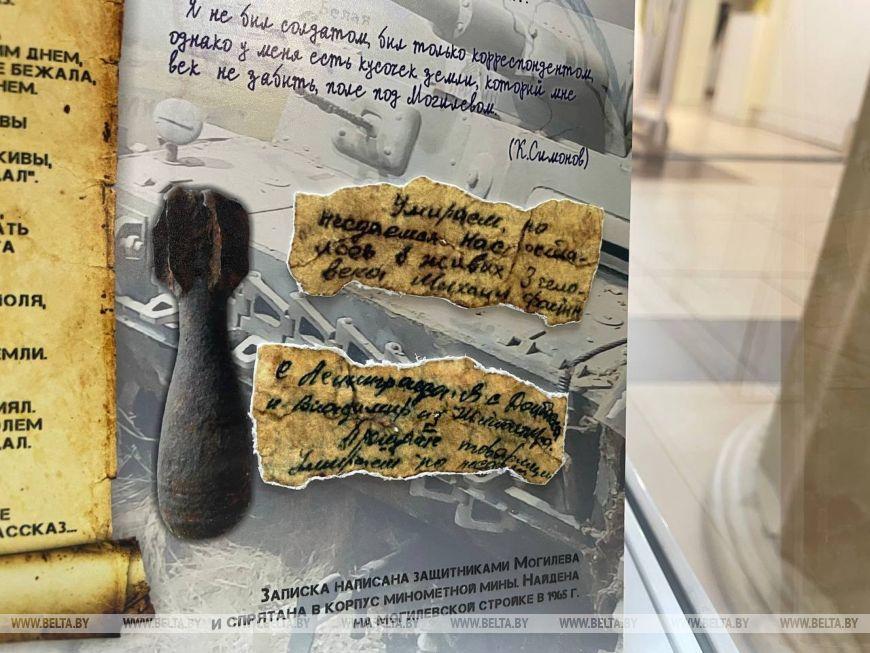 ИМ ДНЕМ,
Е БЕЖАЛА,
НЕМ.
ВЫ
ЖИВЫ,
АЛ".
АТЬ
ТА
ПОЛЯ,
ЕМЛИ.
ИЯЛ.
ОЛЕМ
АЛ.
Е
АССКАЗ...
Белая
Я не был солдатом, был только корреспондентом,
однако у меня есть кусочек земли, который мне
век не забыть, поле под Могилевом.
(К.Симонов)
Умираем, но
несдаемся нас оста-
лось в живых 3 чело-
века Михаил
с Ленинграда, В с Донбаса
и Владимир из
Прощай товарищи
Умираем но
Записка написана защитниками Могилева
и спрятана в корпус минометной мины. Найдена
на могилевской стройке в 1965 г.
WWW.BELTA.BY WWW.BELTA.BY WWW.BELTA.BY WWW.BELTA.BY WWW.BELTA.BY WWW.BELTA.BY WWW.BELTA.BY WWW.BELTA.BY